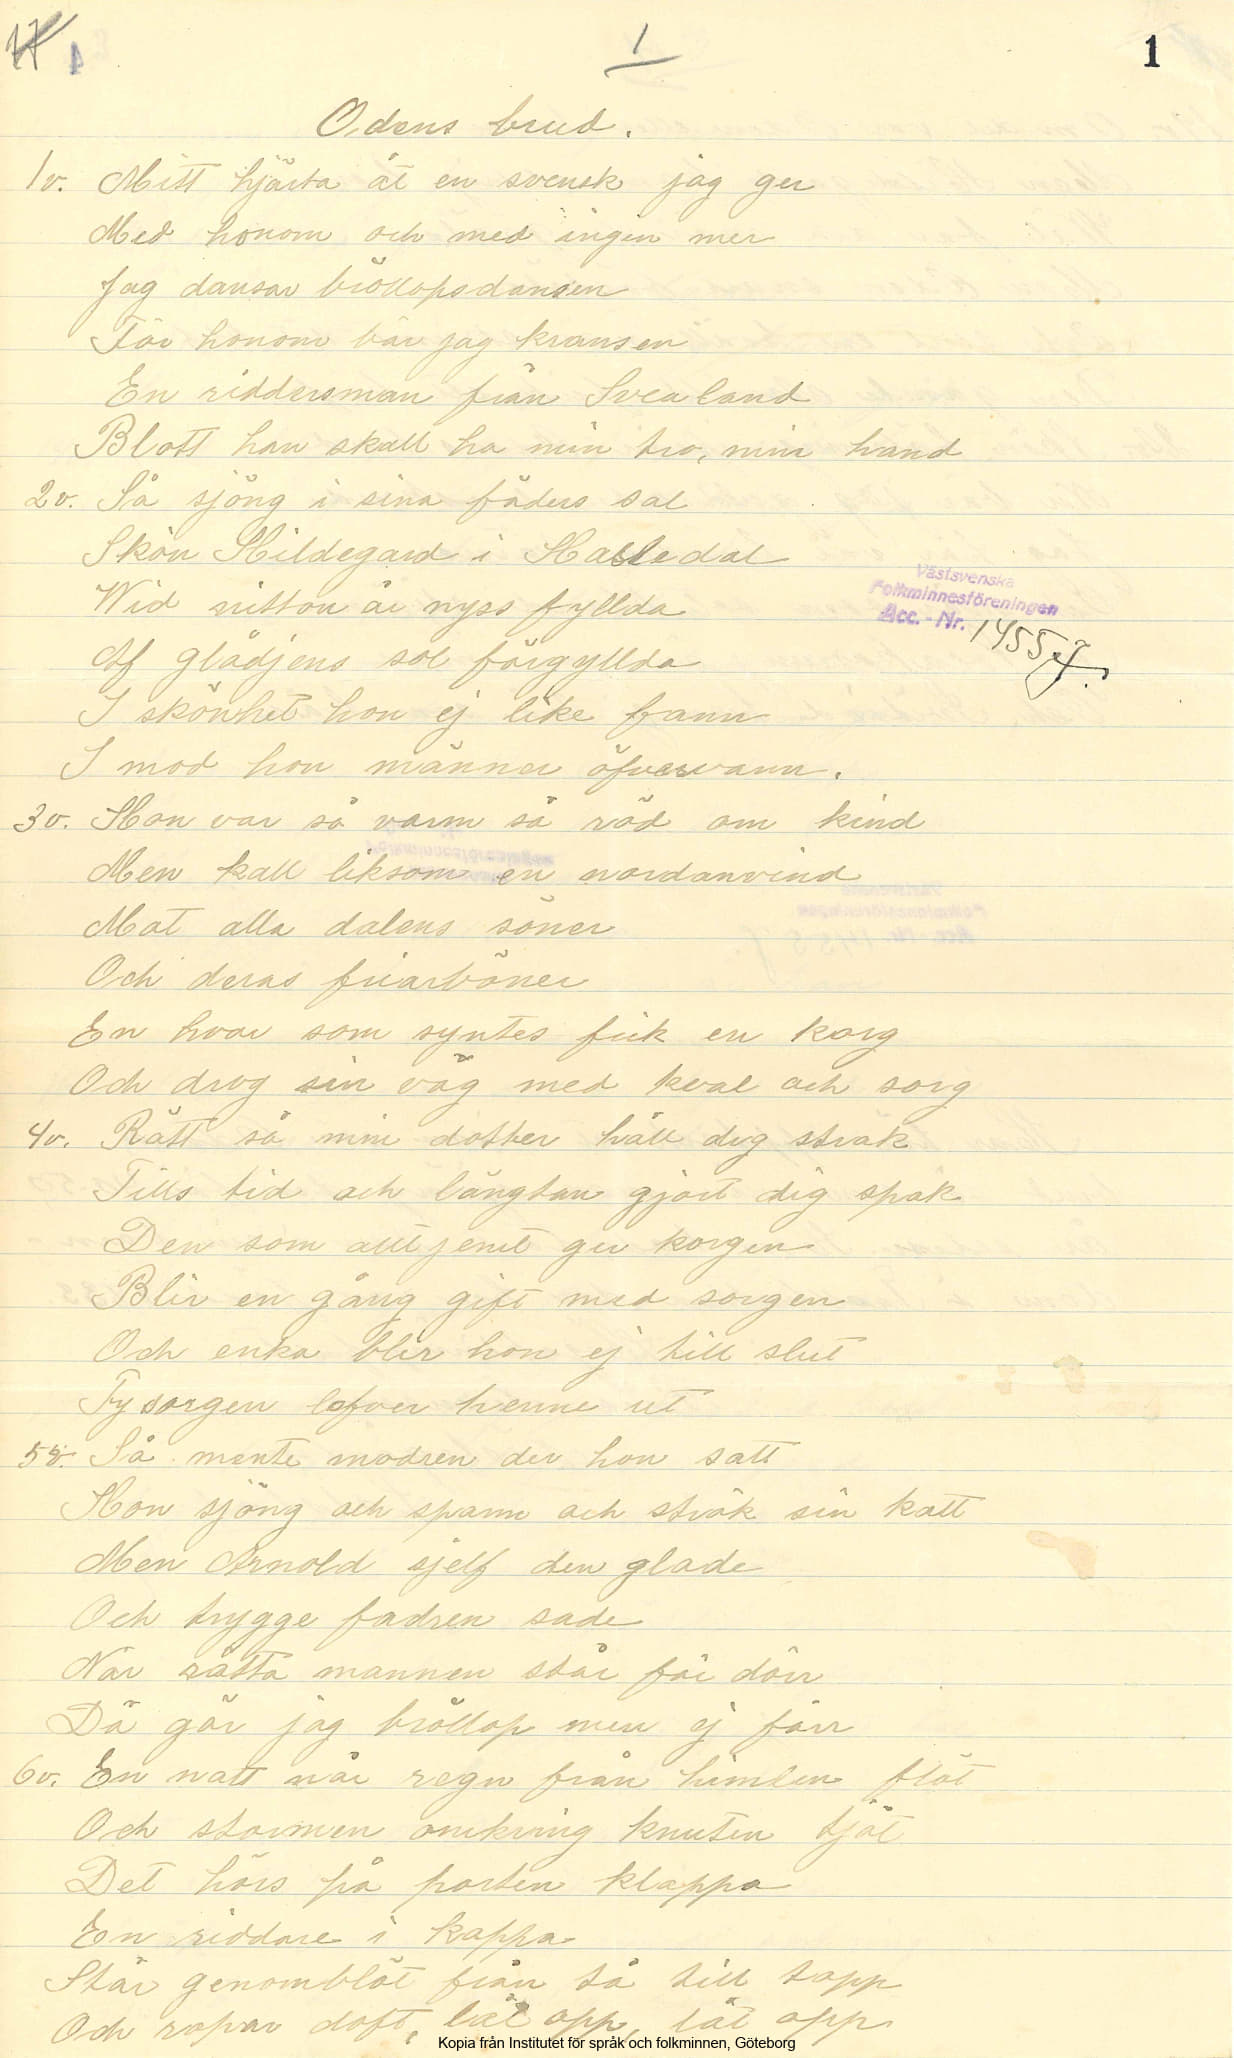 1
1
Odens brud.
1v. Mitt hjärta åt en svensk jag ger
Med honom och med ingen mer
Jag dansar bröllopsdansen
För honom bär jag kransen
En riddersman från Svealand
Blott han skall ha min tro, min hand
2v. Så sjöng i sina fäders sal
Skön Hildegard i Halledal
Wid nitton år nyss fyllda
Af glädjens sol förgyllda
I skönhet hon ej like fann
I mod hon männer öfvervann.
Västsvenska
Folkminnesföreningen
Acc.-Nr. 1455
3v. Hon var så varm så röd om kind
Men kall liksom en nordanvind
Mot alla dalens söner
Och deras friarböner
En hvar som syntes fick en korg
Och drog sin väg med kval och sorg
4v. Rätt så min dotter håll dig strak
Tills tid och längtan gjort dig spak
Den som allt jemt ger korgen
Blir en gång gift med sorgen
Och enka blir hon ej till slut
Ty sorgen lefver henne ut
5v. Så mente modren der hon satt
Hon sjöng och spann och strök sin katt
Men Arnold sjelf den glade
Och trygge fadren sade
När rätta mannen står för dörr
Då gör jag bröllop men ej förr
6v. En natt när regn från himlen flöt
Och stormen omkring knuten tjöt
Det hörs på porten klappa
En riddare i kappa
Står genomblöt från tå till topp
Och ropar doft, låt opp, låt opp
Kopia från Institutet för språk och folkminnen, Göteborg